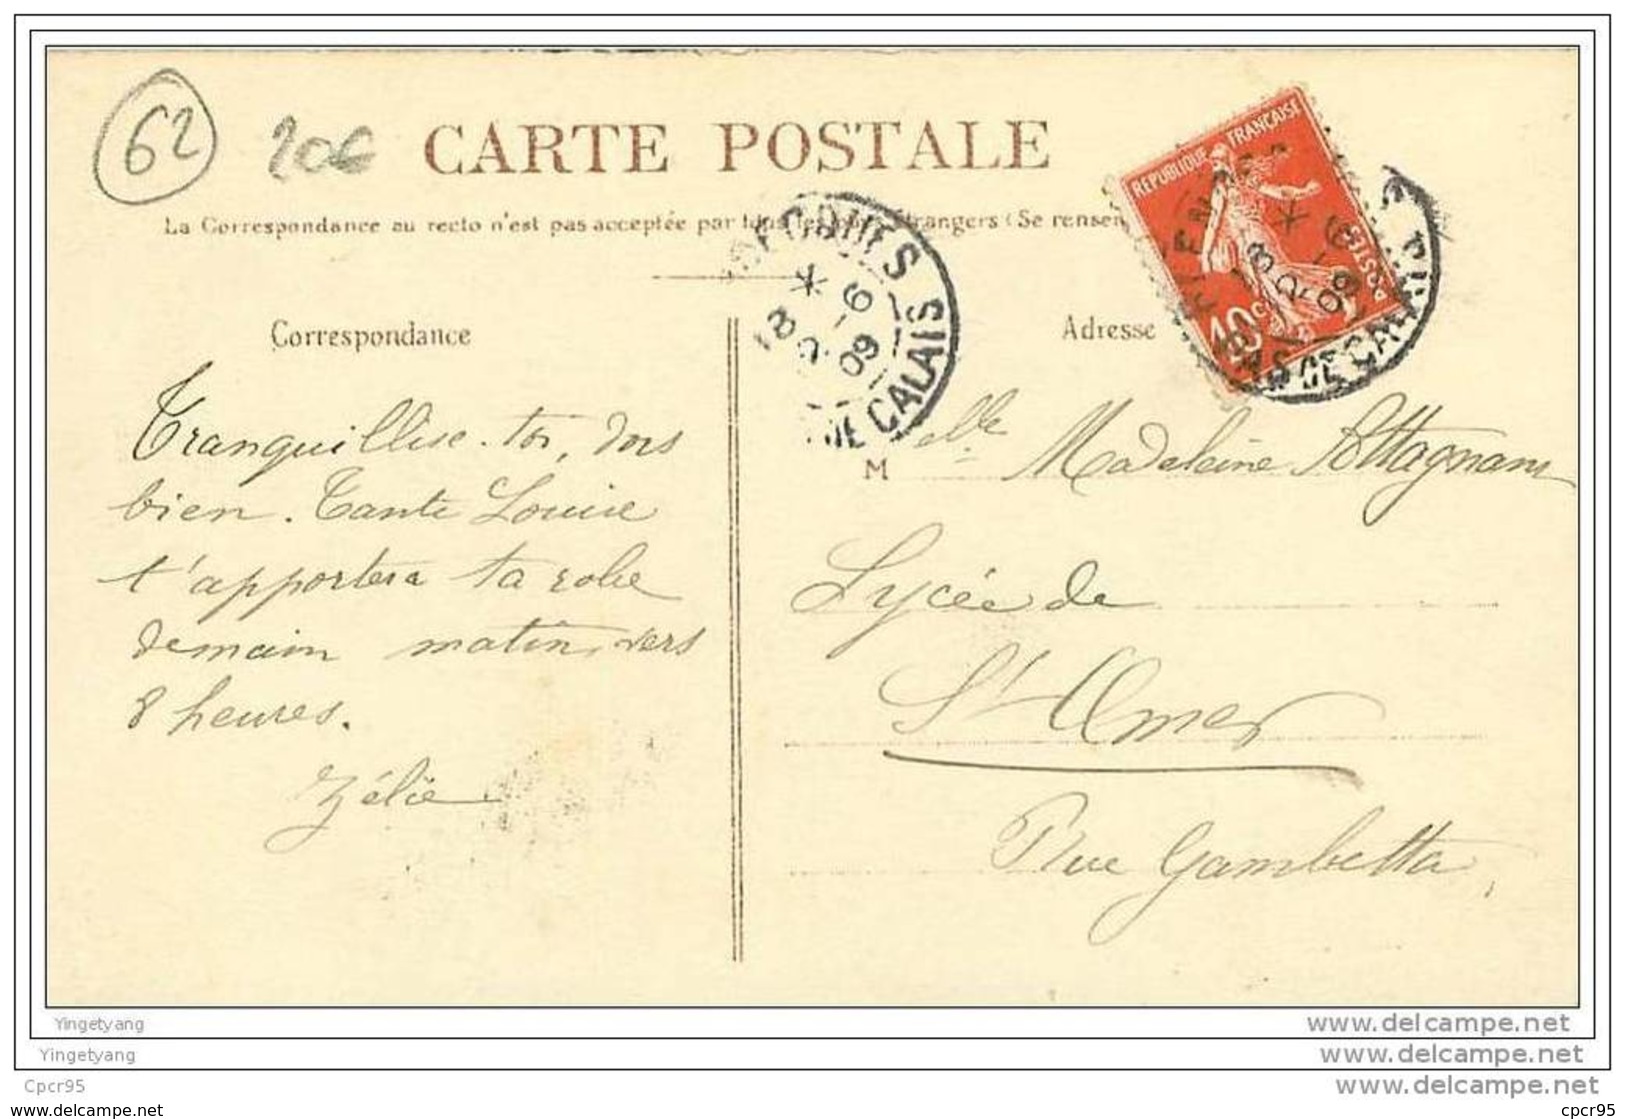 62
20€
CARTE POSTALE
La Correspondance au recto n'est pas acceptée par tous les pays étrangers (Se rensei
REPUBLIQUE FRANÇAISE
POSTES
10c
18 * 2-6 09
DE CALAIS
18 * 2-6 09
PAS DE CALAIS
Correspondance
Adresse
Tranquillise-toi, dors
bien. Tante Louise
t'apportera ta robe
demain matin, vers
8 heures.
Zélie
M elle Madeleine
Lycée de
St Omer
Rue Gambetta
Yingetyang
www.delcampe.net
Yingetyang
www.delcampe.net
Cpcr95
www.delcampe.net
www.delcampe.net
cpcr95